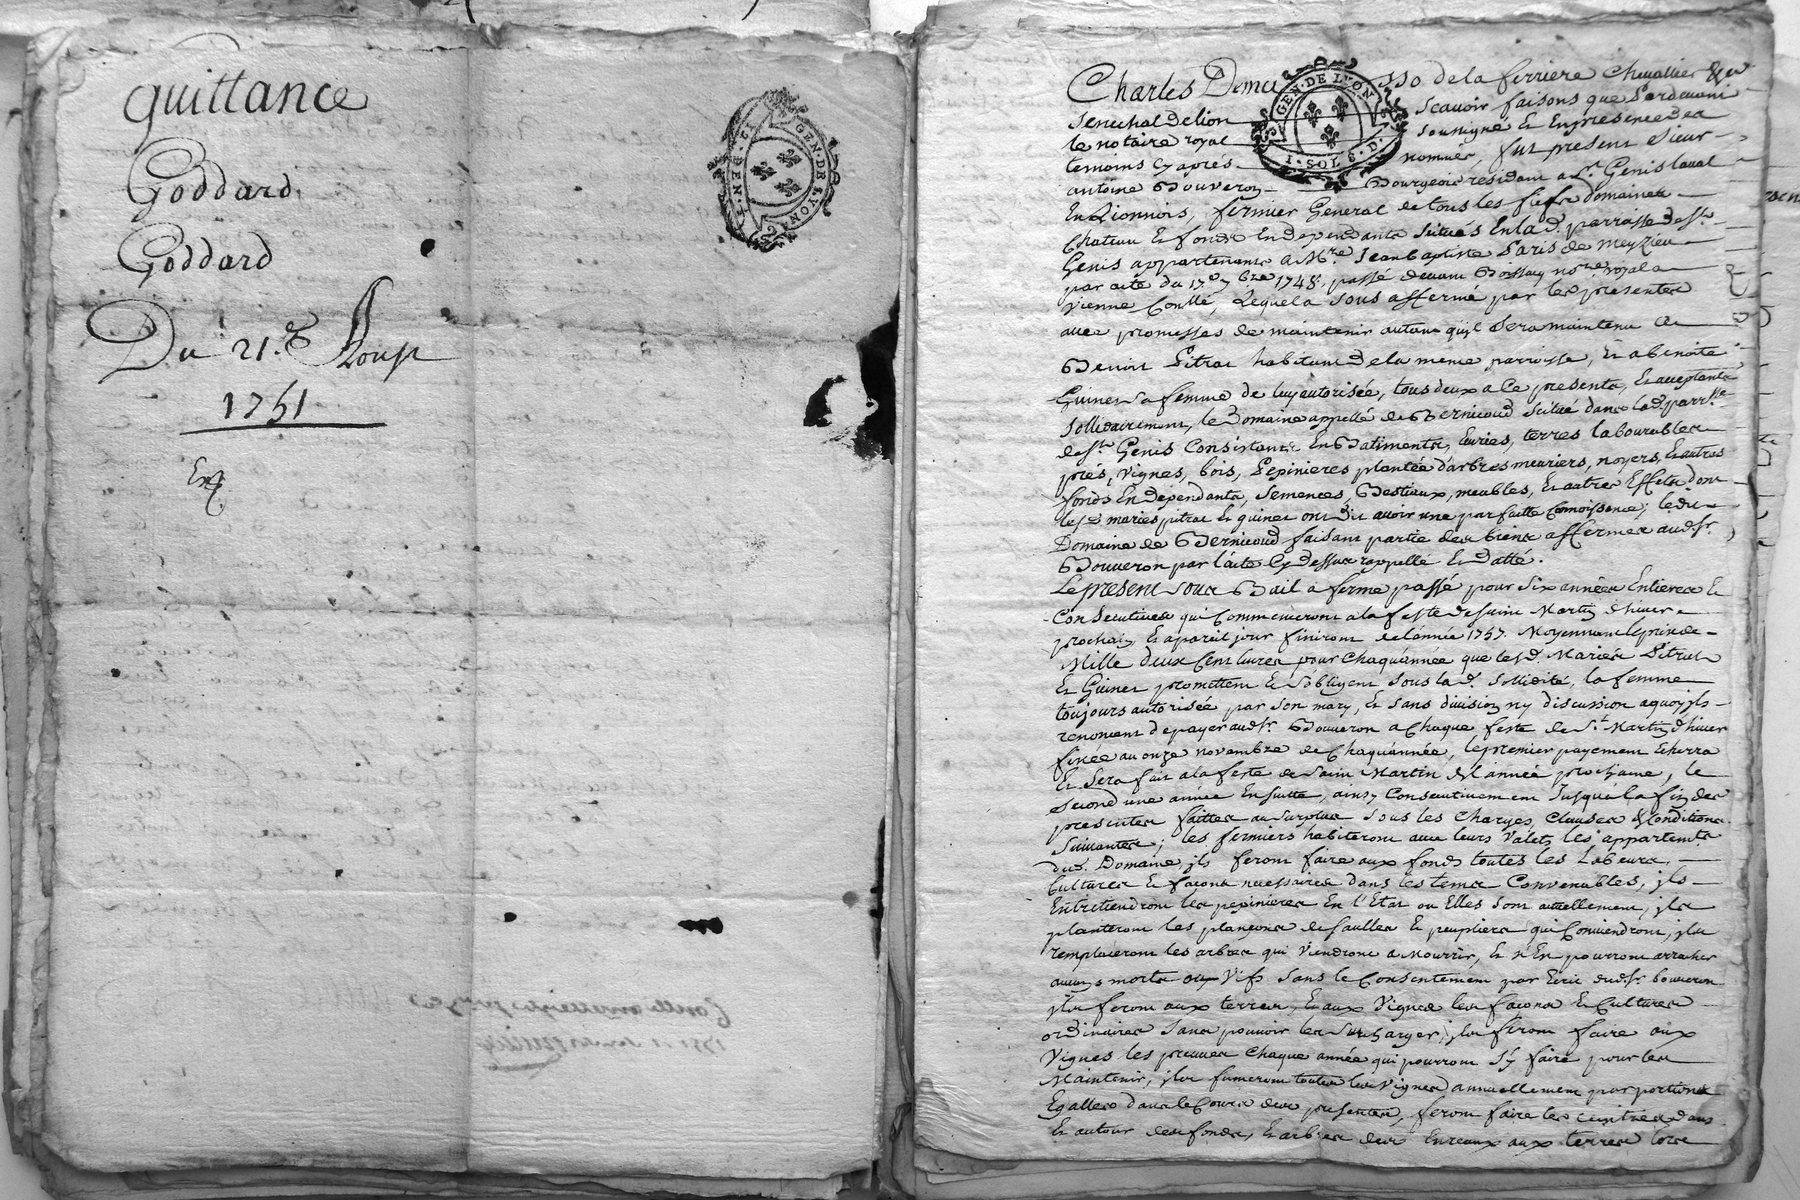 quittance
Goddard
Goddard
Du 21.e Aoust
1751
GEN·DE LYON
Charles Demasso de la ferriere Chevallier &a
GEN·DE LYON
1·SOL 6·D
Senechal de lion Scavoir faisons que Pardevant
le notaire royal Sousigné Et En presence des
temoins Cy après nommés, fut present Sieur
antoine Bouveron Bourgeois residant a St. Genis laval
En Lionnois, fermier General de tous les fiefs domaines
Chateau Et fonds En dependants Situés En lad. parroisse de St.
Genis appartenants a Mre. Jean baptiste Paris de Meyzieu
par acte du 17e. 7bre 1748, passé devant Boissay nore. royal a
Vienne Conllé, Lequel a sous affermé par les presentes
avec promesses de maintenir autant quil sera maintenu a
Benoit Pitrat habitant de la meme parroisse, Et a benoite
Guinet sa femme de luy autorisée, tous deux a Ce presents, Et acceptants
Sollidairement, le Domaine appellé de Bernicoud Scitué dans lad. parrsse.
de St. Genis Consistant En Batiments, Ecuries, terres labourables
prés, Vignes, bois, Pepinieres plantée d'arbres meuriers, noyers, Et autres
fonds En dependants, Semences, Bestiaux, meubles, Et autres Effets dont
lesd. mariés pitrat Et guinet ont dit avoir une parfaitte Connoissance; ledit
Domaine de Bernicoud faisant partie des biens affermés aud. Sr.
Bouveron par l'acte Cy dessus rappellé Et datté.
Le present sous Bail a ferme passé pour Six années Entieres Et
Consecutives qui Commenceront a la feste de saint Martin d'hiver
prochain, Et a pareil jour finiront de l'année 1757. Moyennant le prix de
Mille deux Cent livres pour chaqu'année que lesd. Mariés Pitrat
Et Guinet promettent Et s'obligent sous lad. Sollidité, la femme
toujours autorisée par son mary, Et sans division ny discussion a quoy jls
renoncent de payer aud. Sr. Bouveron a Chaque feste de St. Martin d'hiver
fixée au onze novembre de Chaqu'année, le premier payement Echerra
Et Sera fait a la feste de Saint Martin de l'année prochaine, le
second une année En suitte, ainsy Consecutivement Jusqu'a la fin des
presentes faittes au surplus Sous les Charges, Clauses & Conditions
Suivantes; les fermiers habiteront avec leurs Valets les appartemts.
dud. Domaine jls feront faire aux fonds toutes les Labeurs,
Cultures Et façons necessaires dans les tems Convenables, jls
Entretiendront les pepinieres En l'Etat ou Elles sont actuellement, jls
planteront les plançons de saulles Et peupliers qui Conviendront, jls
remplaceront les arbres qui viendront a Mourrir, Et n'En pourront arracher
aucuns morts ou Vifs sans le Consentement par Ecrit dud. Sr. bouveron
jls feront aux terres, Et aux Vignes les façons Et Cultures
ordinaires sans pouvoir les Surcharger; jls feront faire aux
Vignes les preuves Chaque année qui pourront s'y faire pour les
Maintenir, jls fumeront toutes les Vignes annuellement par portions
Egalles dans le Cours des presentes, feront faire les dans
Et autour des fonds, Et arbres des aux terres lors